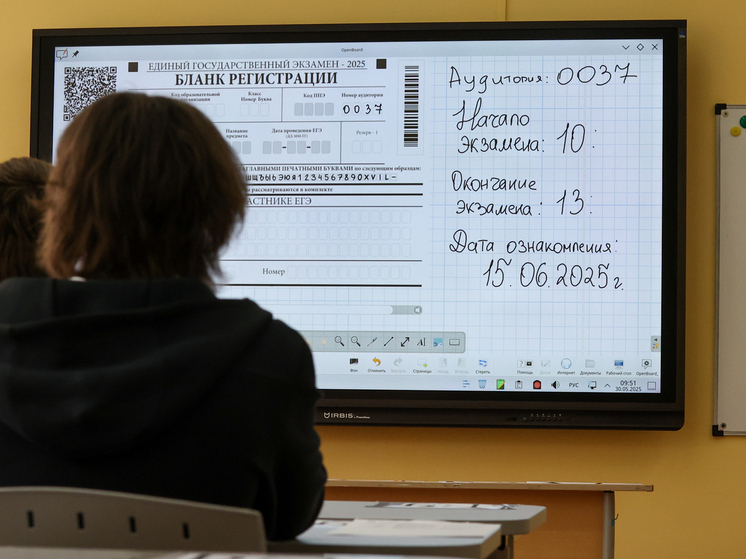 OpenBoard
ЕДИНЫЙ ГОСУДАРСТВЕННЫЙ ЭКЗАМЕН - 2025
БЛАНК РЕГИСТРАЦИИ
Код образовательной
Класс
Номер Буква
Код ППЭ
Номер аудитории
0037
Название
предмета
Дата проведения ЕГЭ
Резерв - 1
ГЛАВНЫМИ ПЕЧАТНЫМИ БУКВАМИ по следующим образцам:
ШЩЪЫЬЭЮЯ1234567890XVIL-
рассматриваются в комплекте
АСТНИКЕ ЕГЭ
Номер
Аудитория: 0037
Начало
экзамена: 10:
Окончание
экзамена: 13:
Дата ознакомления:
15.06.2025г.
Отменить
Страницы
Стереть
Помощь
Интернет
Документы
Рабочий стол
OpenBoard
РУС
09:51
30.05.2025
IRBIS